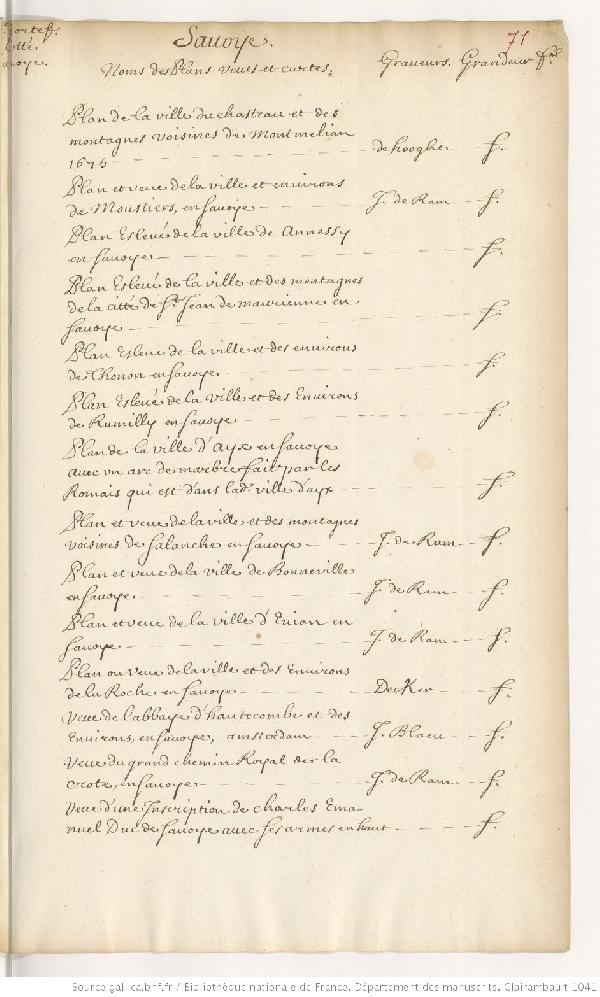 Savoye.
71
Noms des Plans veues et cartes; Graveurs. Grandeur
Plan de la ville du chasteau et des
montagnes voisines de Montmelian
1675 de hooghe f.
Plan et veue de la ville et environs
de Moustiers, en savoye J. de Ram f.
Plan Eslevé de la ville de Annessy
en savoye f.
Plan Eslevé de la ville et des montagnes
de la citté de St. Jean de maurienne en
savoye f.
Plan Esleve de la ville et des environs
de Thonon en savoye f.
Plan Eslevé de la ville et des Environs
de Rumilly en savoye f.
Plan de la ville d'ayx en savoye
avec un arc de marbre fait par les
Romais qui est dans lade. ville d'ayx f.
Plan et veue de la ville et des montagnes
voisines de Salanche en savoye J. de Ram f.
Plan et veue de la ville de Bonneville
en savoye J. de Ram f.
Plan et veue de la ville d'Evian en
savoye J. de Ram f.
Plan ou veue de la ville et des Environs
de la Roche en savoye Decker f.
Veue de l'abbaye d'hautecombe et des
Environs, en savoye, amsterdam J. Blaeu f.
Veue du grand chemin Royal de la
Crote, en savoye J. de Ram f.
Veue d'une Inscription de Charles Ema-
nuel Duc de savoye avec ses armes en haut f.
Source gallica.bnf.fr / Bibliothèque nationale de France. Département des manuscrits. Clairambault 1041